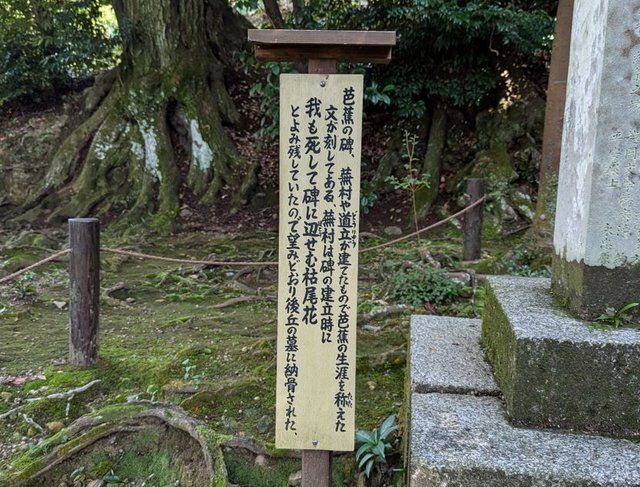 芭蕉の碑、蕪村や道立が建てたもので芭蕉の生涯を称えた
どうりゅう
たた
文が刻してある、蕪村は碑の建立時に
我も死して碑に辺せむ枯尾花
とよみ残していたので望みどおり後丘の墓に納骨された、